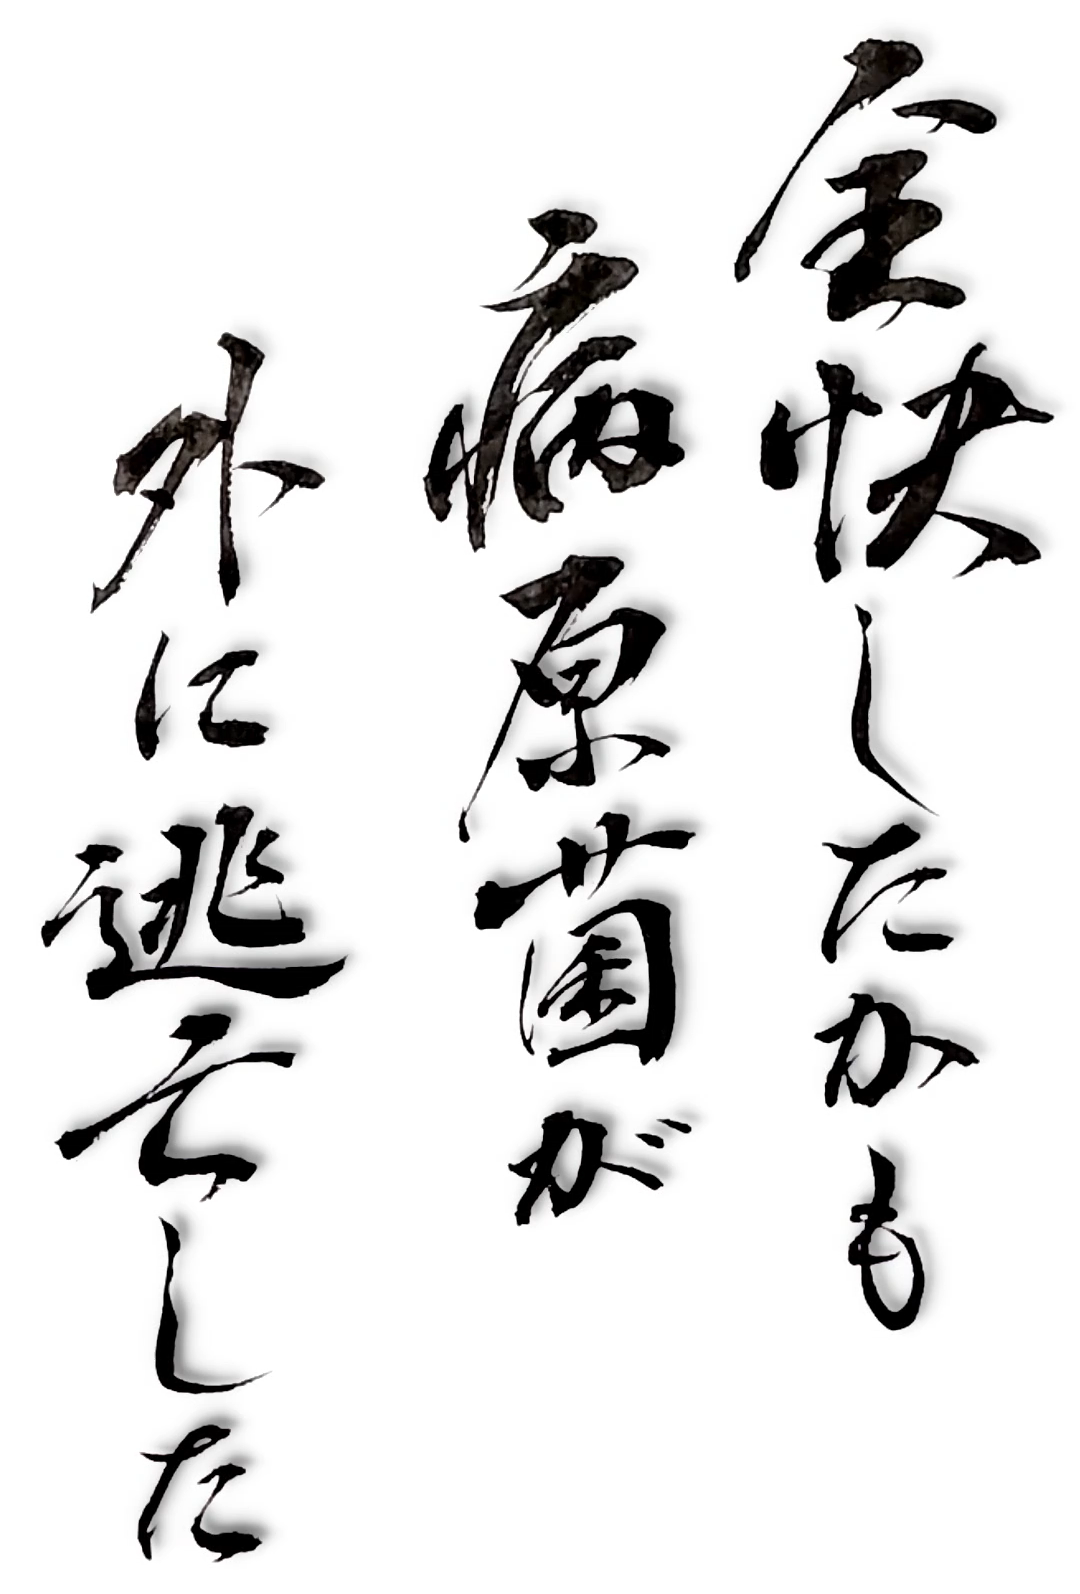 全快したかも
病原菌が
外に逃亡した